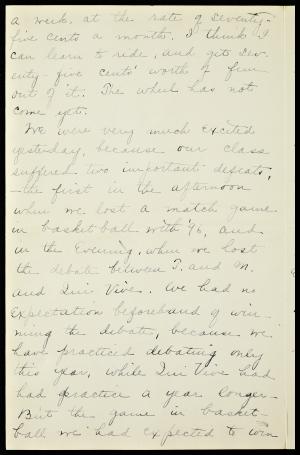 a week, at the rate of seventy-
five cents a month. I think I
can learn to ride, and get sev-
enty-five cents' worth of fun
out of it. The wheel has not
come yet.
We were very much excited
yesterday, because our class
suffered two important defeats,
—the first in the afternoon
when we lost a match game
in basket ball with '96, and
in the Evening, when we lost
the debate between T. and M.
and Qui Vive. We had no
Expectation beforehand of win-
ning the debate, because we
have practiced debating only
this year, while Qui Vive had
had practice a year longer.
But the game in basket-
ball we had expected to win